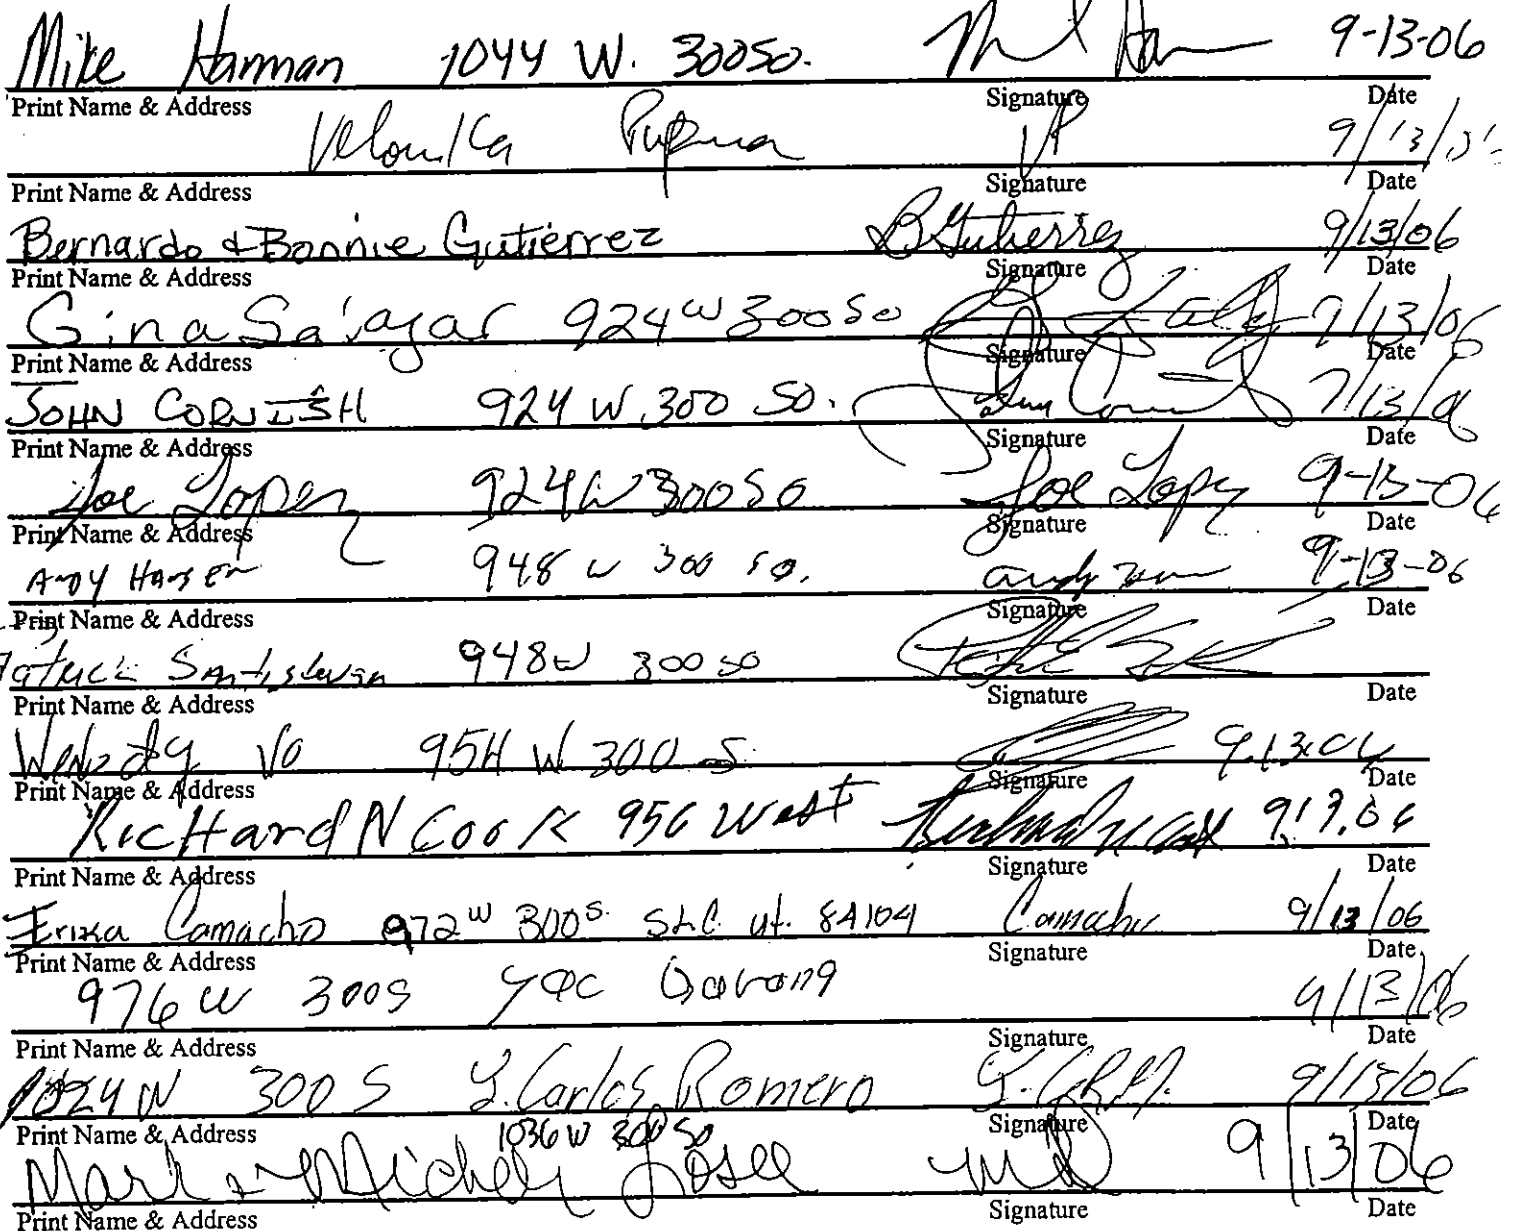 Mike Harman 1044 W. 300 So. 9-13-06
Print Name & Address Signature Date
9/13/
Print Name & Address Signature Date
Bernardo & Bonnie Gutierrez B Gutierrez 9/13/06
Print Name & Address Signature Date
Gina Salazar 924 W 300 So 9/13/06
Print Name & Address Signature Date
JOHN CORNISH 924 W. 300 SO. 9/13/06
Print Name & Address Signature Date
Joe Lopez 924 W 300 So Joe Lopez 9-13-06
Print Name & Address Signature Date
Andy Hansen 948 W 300 So. Andy 9-13-06
Print Name & Address Signature Date
Patrick Santistevan 948 W 300 so
Print Name & Address Signature Date
Vo 954 W. 300 S 9.13.06
Print Name & Address Signature Date
RicHard N Cook 956 West Richard N Cook 9.13.06
Print Name & Address Signature Date
Erika Camacho 972 W 300 S. SLC Ut. 84104 Camacho 9/13/06
Print Name & Address Signature Date
976 W 300 S 9/13/06
Print Name & Address Signature Date
1024 W 300 S J. Carlos Romero 9/13/06
Print Name & Address 1036 W 300 So Signature Date
Mark & Michele Losee 9/13/06
Print Name & Address Signature Date